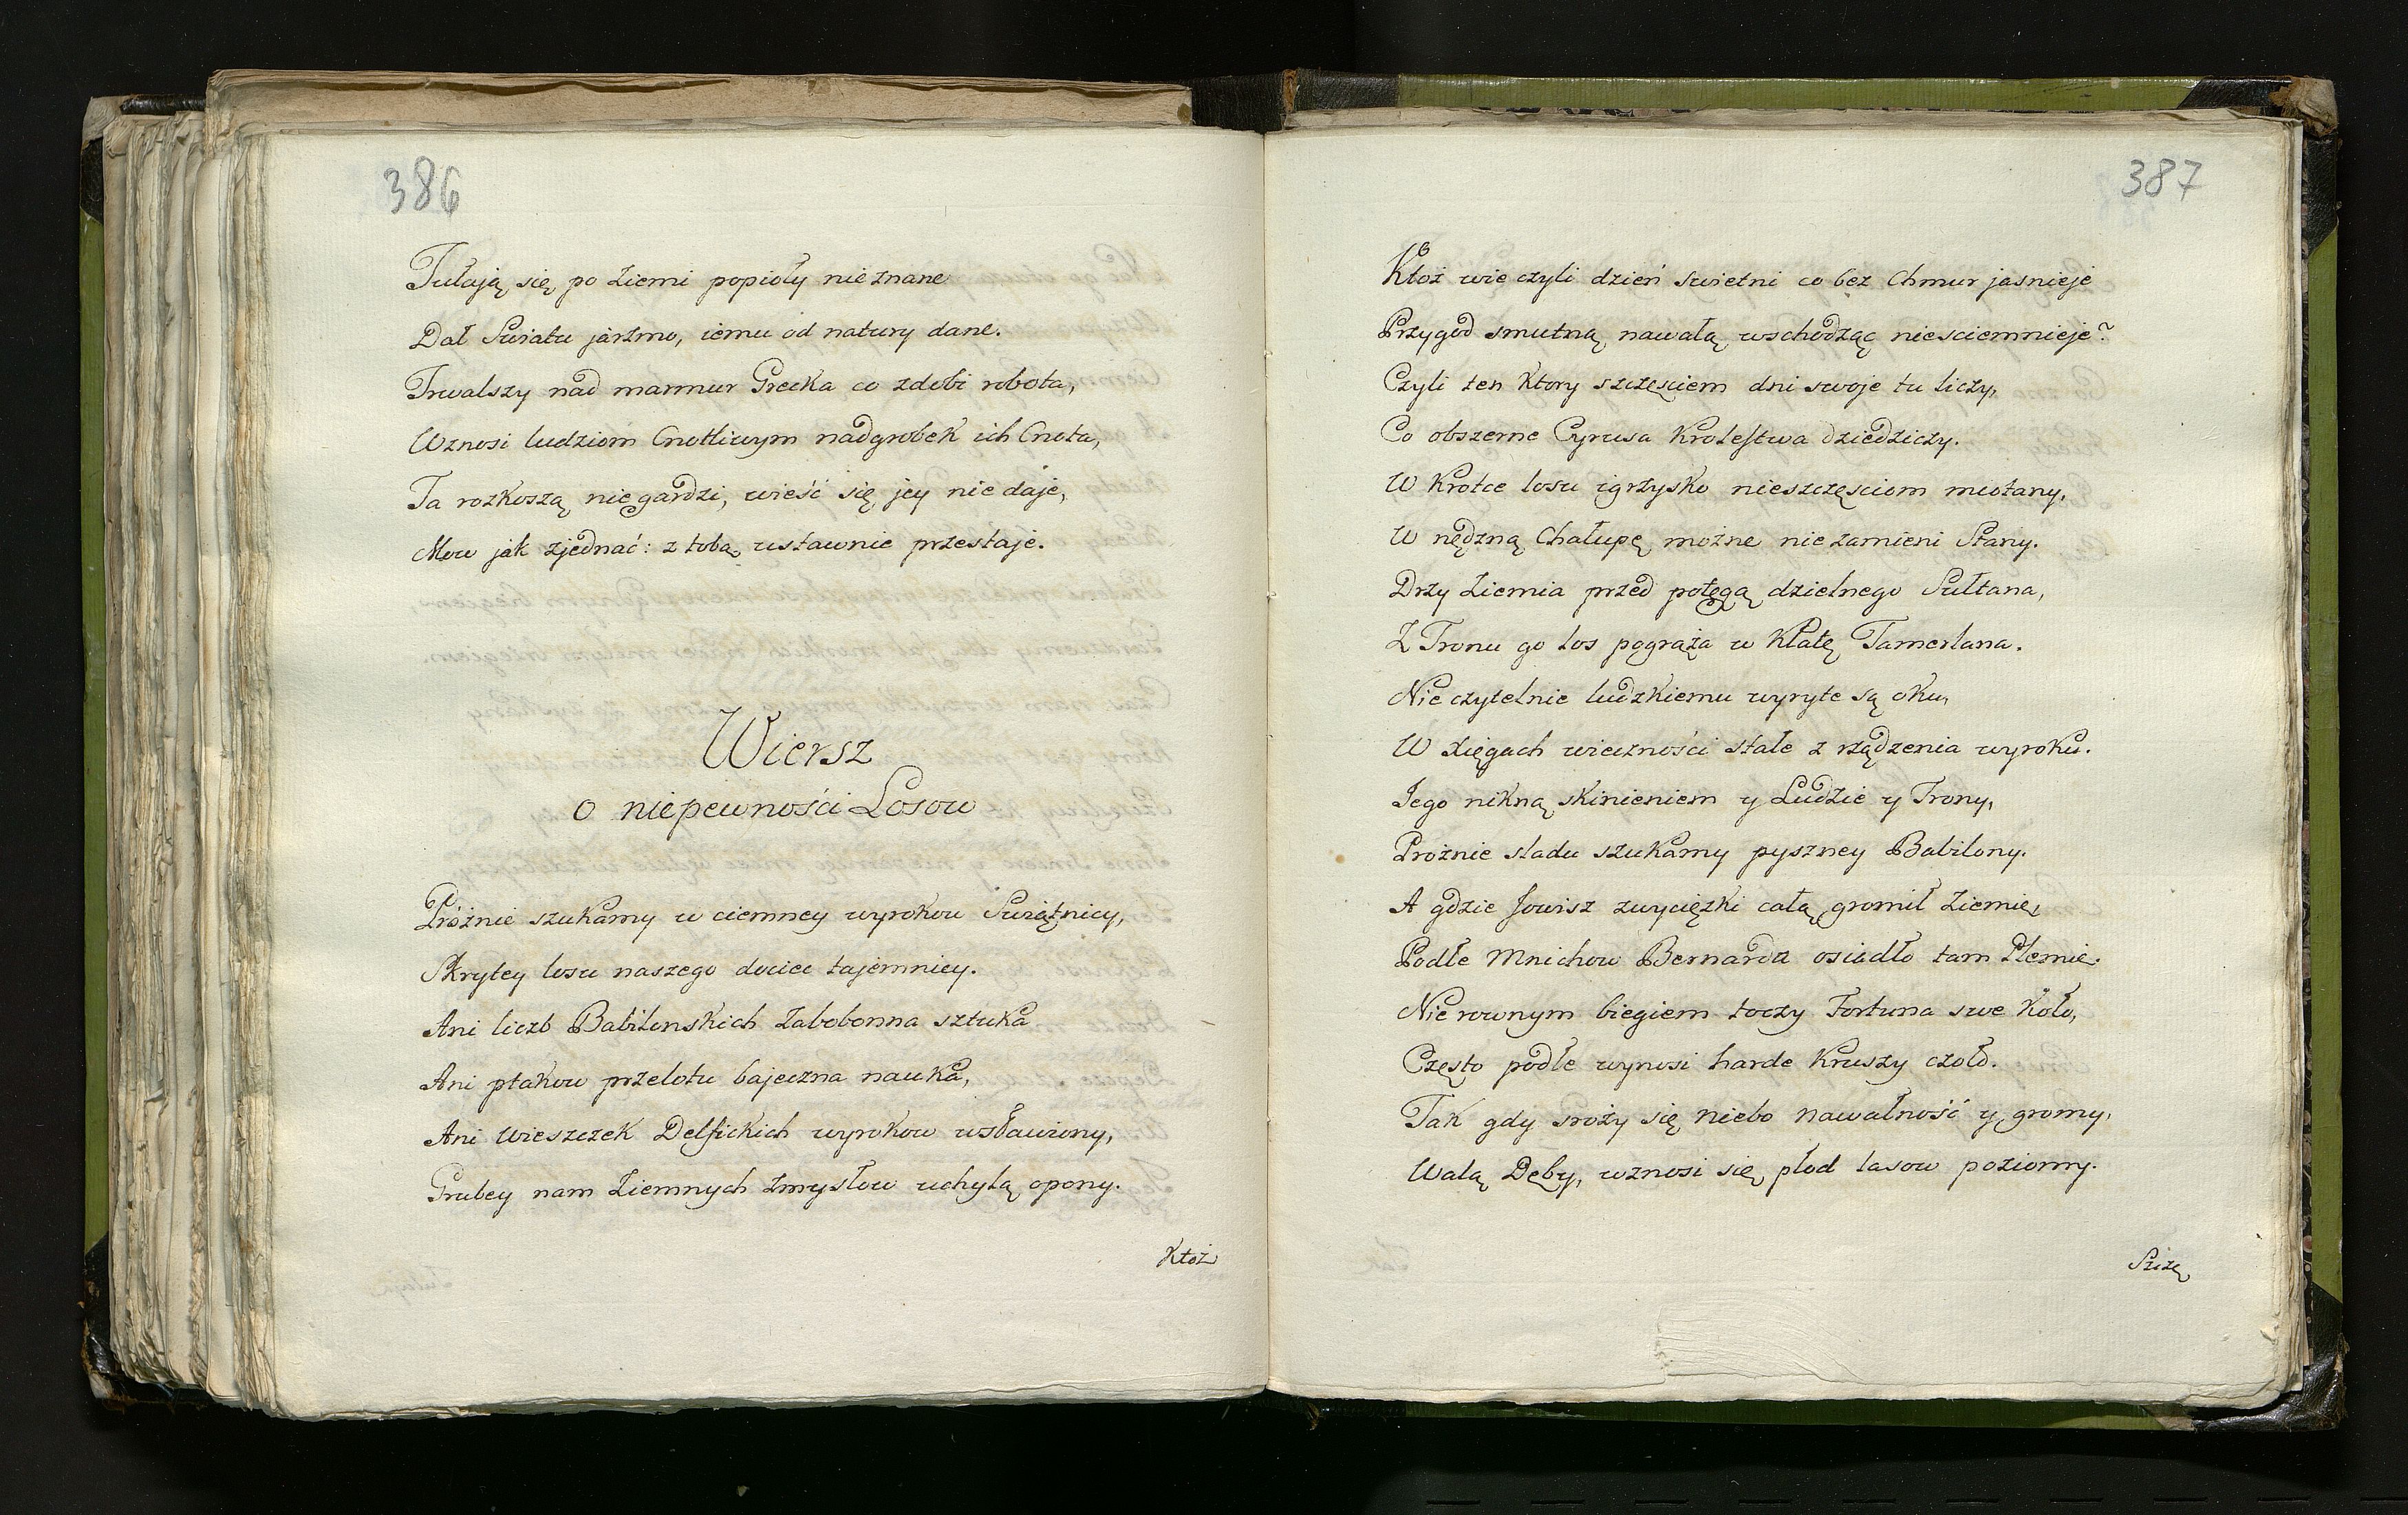 386
Tułają się po ziemi popioły nieznane
Dał Swiatu jarzmo, iemu od natury dane.
Trwalszy nad marmur Grecka co zdobi robota,
Wznosi ludziom Cnotliwym nadgrobek ich Cnota,
Ta rozkoszą niegardzi, wieść się jey nie daje,
Mow jak zjednać: z tobą ustawnie przestaje.
Wiersz
o niepewności Losow
Próżnie szukamy w ciemney wyrokow Swiątnicy,
Skrytey losu naszego dociec tajemnicy.
Ani liczb Babilonskich Zabobonna sztuka
Ani ptakow przelotu bajeczna nauka,
Ani Wieszczek Delfickich wyrokow wsławiony,
Grubey nam Ziemnych Zmysłow uchylą opony.
Ktoż
387
Ktoż wie czyli dzień swietni co bez Chmur jasnieje
Przygod smutną nawałą wschodząc niesciemnieje?
Czyli ten Ktory szczęsciem dni swoje tu liczy,
Co obszerne Cyrusa Krolestwa dziedziczy.
W Krotce losu igrzysko nieszczęsciom miotany,
W nędzną Chałupę możne nie zamieni Stany.
Drzy Ziemia przed potęgą dzielnego Sułtana,
Z Tronu go los pogrąża w Klatę Tamerlana.
Nie czytelnie ludzkiemu wyryte są oku,
W Xięgach wieczności stałe z rządzenia wyroku.
Jego nikną skinieniem y Ludzie y Trony,
Prożnie sladu szukamy pyszney Babilony.
A gdzie Jowisz zwycięzki całą gromił Ziemię,
Podłe Mnichow Bernarda osiadło tam Plemie.
Nie rownym biegiem toczy Fortuna swe Koło,
Często podłe wynosi harde Kruszy czoło.
Tak gdy sroży się niebo nawałność y gromy,
Walą Dęby, wznosi się płod lasow poziomy.
Szczę